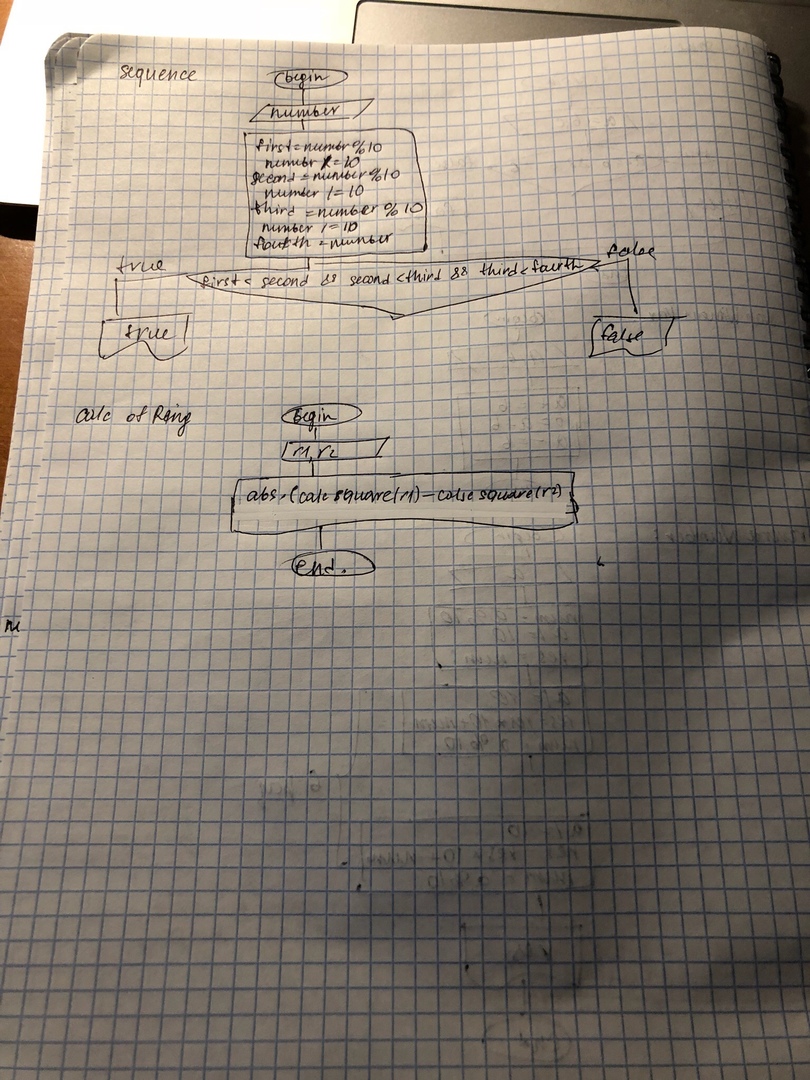 sequence
begin
number
first = number % 10
number /= 10
second = number % 10
number /= 10
third = number % 10
number /= 10
fourth = number
true
false
first < second && second < third && third < fourth
true
false
calc of Ring
begin
r1, r2
abs.(calc square(r1) - calc square(r2)
end.